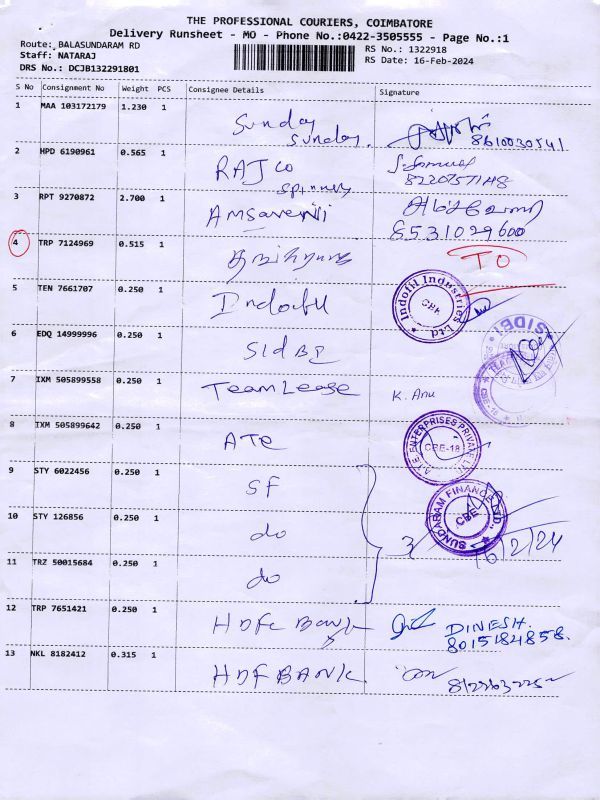 THE PROFESSIONAL COURIERS, COIMBATORE
Delivery Runsheet - MO - Phone No.:0422-3505555 - Page No.:1
Route: BALASUNDARAM RD
RS No.: 1322918
Staff: NATARAJ
RS Date: 16-Feb-2024
DRS No.: DCJB132291801
S No Consignment No Weight PCS Consignee Details Signature
1 MAA 103172179 1.230 1 Sunday
Sunday 8610030541
2 HPD 6190961 0.565 1 RAJCO
3 RPT 9270872 2.700 1
8531029600
4 TRP 7124969 0.515 1 TO
5 TEN 7661707 0.250 1 Indofil Indofil Industries Ltd. CBE
6 EDQ 14999996 0.250 1 SIDBI SIDBI
7 IXM 505899558 0.250 1 TeamLease K. Anu
8 IXM 505899642 0.250 1 ATE A.T.E. ENTERPRISES PRIVATE LTD CBE-18
9 STY 6022456 0.250 1 SF
10 STY 126856 0.250 1 do 3 SUNDARAM FINANCE CBE
11 TRZ 50015684 0.250 1 do
12 TRP 7651421 0.250 1 HDFC Bank DINESH.
8015184858.
13 NKL 8182412 0.315 1 HDF BANK